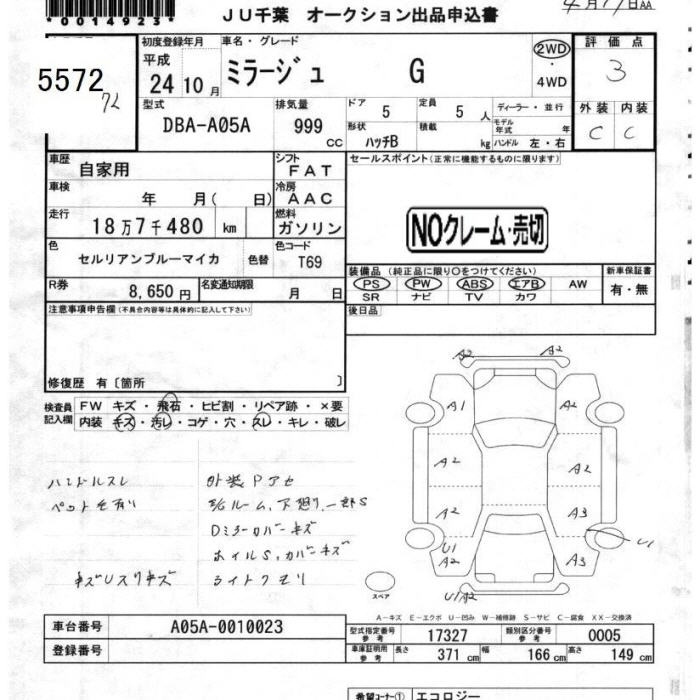 *0014923*
JU千葉 オークション出品申込書
4月17日AA
5572
初度登録年月
平成
24 10 月
車名・グレード
ミラージュ G
2WD
・
4WD
評価点
3
型式
DBA-A05A
排気量
999
cc
ドア
5
定員
5 人
形状
ハッチB
積載
kg
ディーラー・並行
モデル年式 年
ハンドル 左・右
外装 内装
C C
車歴
自家用
シフト
FAT
セールスポイント(正常に機能するものに限ります)
車検
年 月( 日)
冷房
AAC
走行
18万7千480 km
燃料
ガソリン
NOクレーム・売切
色
セルリアンブルーマイカ
色替
色コード
T69
装備品(純正品に限り〇をつけてください)
PS PW ABS エアB AW
SR ナビ TV カワ
新車保証書
有・無
R券
8,650 円
名変通知期限
月 日
後日品
注意事項申告欄(不具合内容等は具体的に記入して下さい)
修復歴 有〔箇所 〕
検査員記入欄
FW キズ・飛石・ヒビ割・リペア跡・×要
内装 キズ・汚レ・コゲ・穴・スレ・キレ・破レ
ハンドルスレ
ペット毛有り
キズUスリキズ
外装Pアセ
E/Gルーム,下廻り,一部S
Dミラーカバーキズ
ホイルS,カバーキズ
ライトクモリ
A2 A2
A1 A2
A2 A2
A2 A3
U1
A2 A3 U1
U1A2
スペア
A-キズ E-エクボ U-凹み W-補修跡 S-サビ C-腐食 XX-交換済
車台番号
A05A-0010023
登録番号
型式指定番号
参考
17327
類別区分番号
参考
0005
車庫証明用
参考
長さ 371 cm
幅 166 cm
高さ 149 cm
希望コーナー① エコロジー